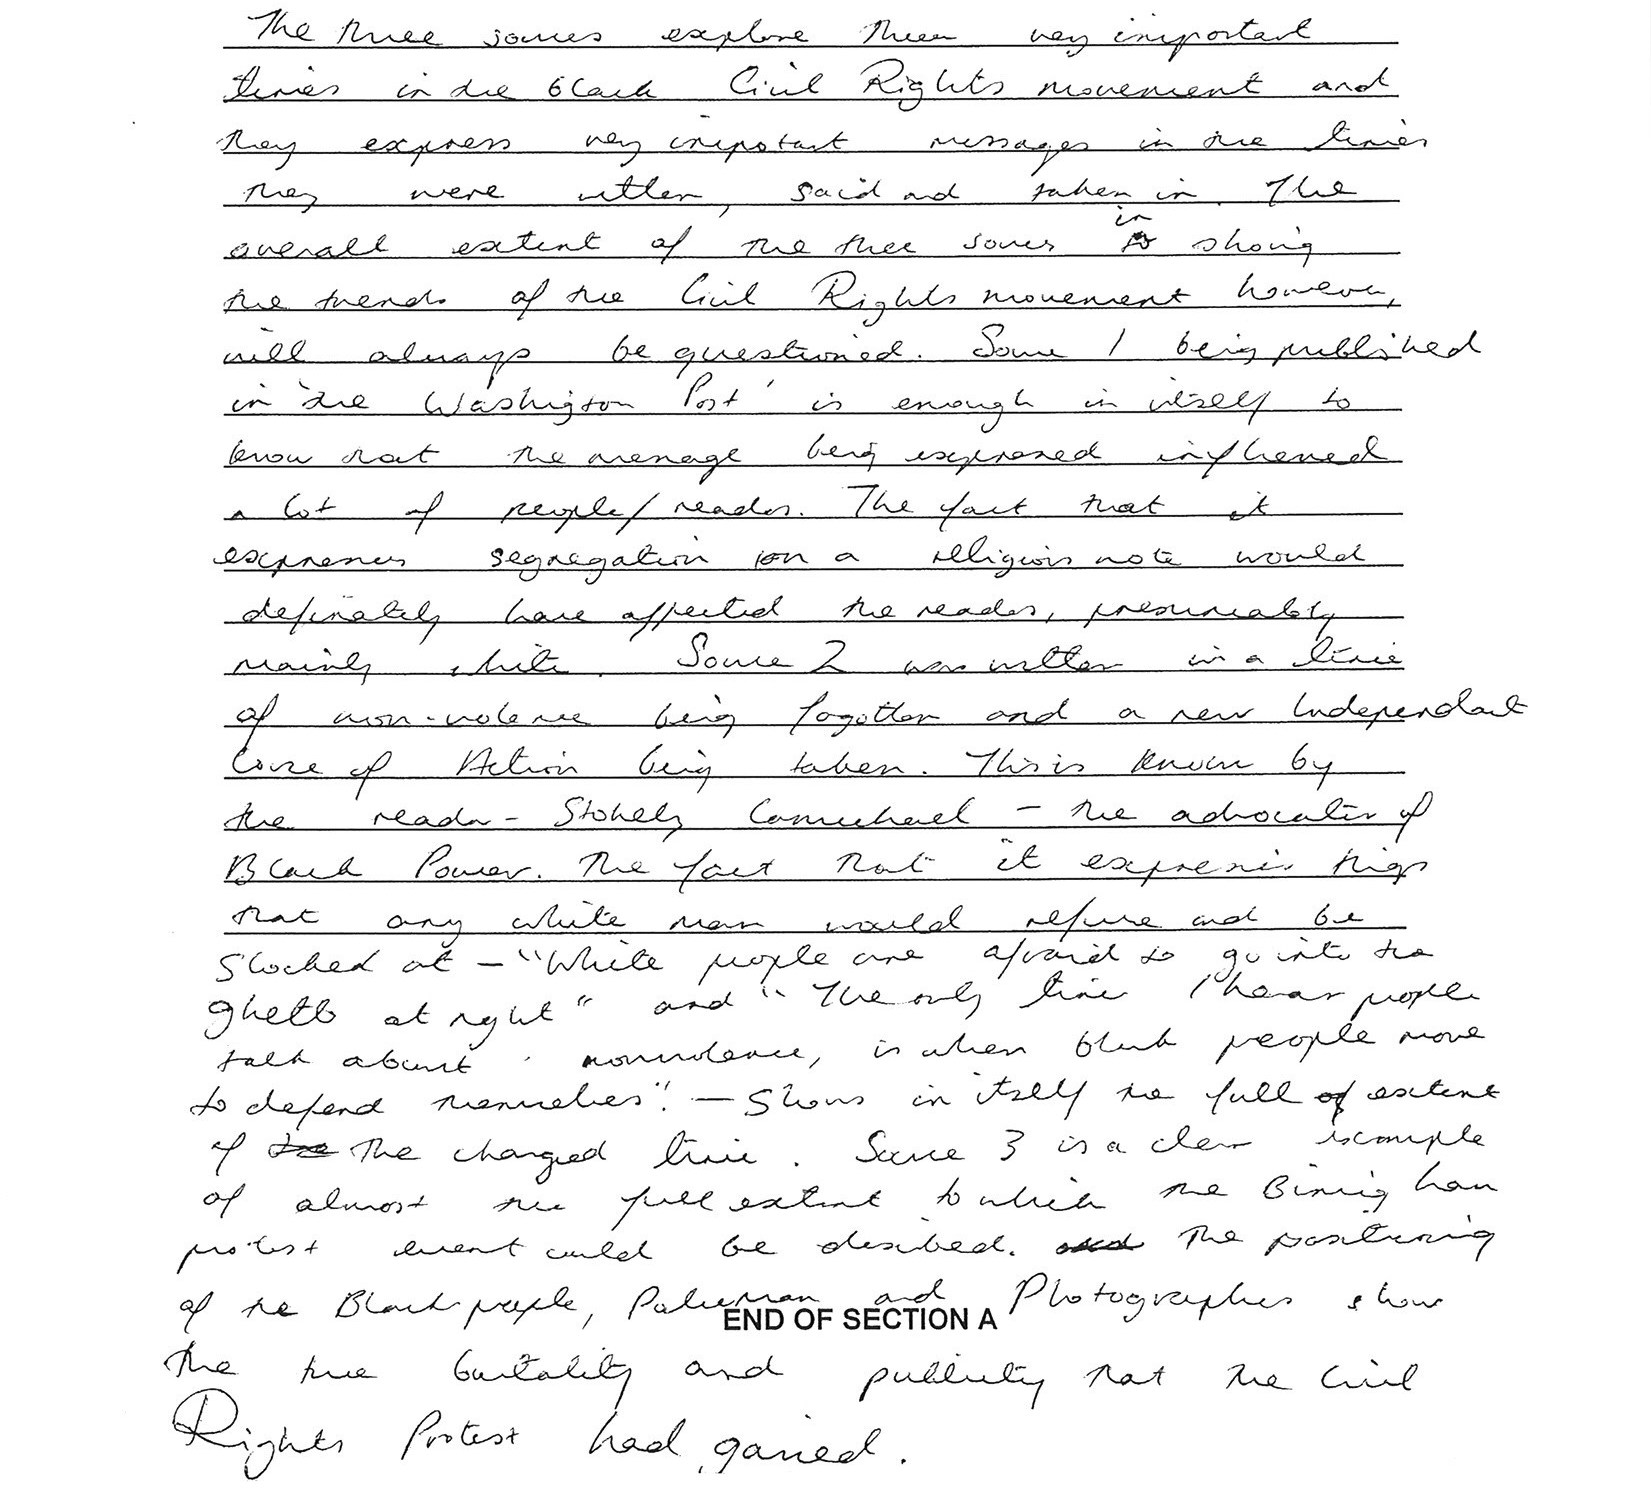 The three sources explore three very important
times in the black Civil Rights movement and
they express very important messages in the times
they were written, said and taken in. The
overall extent of the three sources in showing
the trends of the Civil Rights movement however,
will always be questioned. Source 1 being published
in 'the Washington Post' is enough in itself to
know that the message being expressed influenced
a lot of people/readers. The fact that it
expresses segregation on a religious note would
definately have affected the readers, presumeably
mainly white. Source 2 was written in a time
of non-violence being forgotten and a new Independant
Course of Action being taken. This is known by
the reader - Stokely Carmichael - the advocator of
Black Power. The fact that it expresses things
that any white man would refuse and be
shocked at - "White people are afraid to go into the
ghetto at night" and "The only time I hear people
talk about nonviolence, is when black people move
to defend themselves". - Shows in itself the full of extent
of the The changed time. Source 3 is a clear example
of almost the full extent to which the Birmingham
protest event could be described. and The positioning
of the Black people, Policeman and Photographers show
END OF SECTION A
the true brutality and publicity that the Civil
Rights Protest had gained.